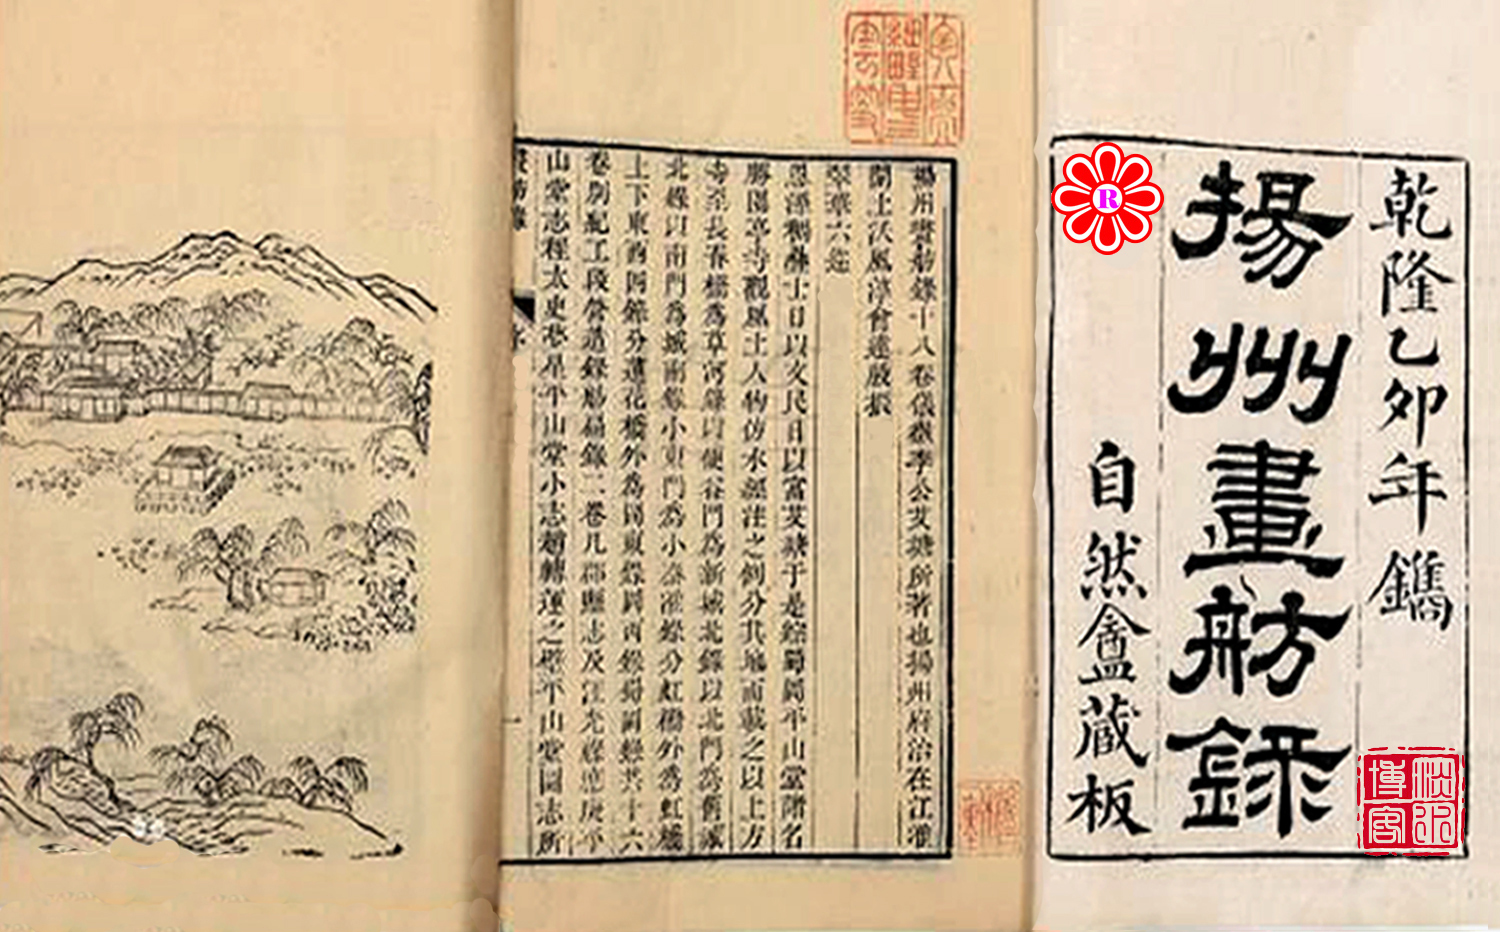 乾隆乙卯年鐫
揚州畫舫錄
自然盦藏板
R
博客
揚州畫舫錄十八卷儀徵李公艾塘所著也揚州府治在江淮
間土沃風淳會達殷振
翠華六巡
恩澤稠疊士日以文民日以富艾塘于是綜蜀岡平山堂諸名
勝園亭寺觀風土人物仿水經注之例分其地而載之以上方
寺至長春橋為草河錄以便益門為新城北錄以北門為舊城
北錄以南門為城南錄小東門為小秦淮錄分虹橋外為虹橋
上下東西四錄分蓮花橋外為岡東錄岡西錄蜀岡錄共十六
卷別紀工段營造錄舫扁錄二卷凡郡縣志及汪光祿應庚平
山堂志程太史夢星平山堂小志趙轉運之璧平山堂圖志所
畫舫錄
序
一